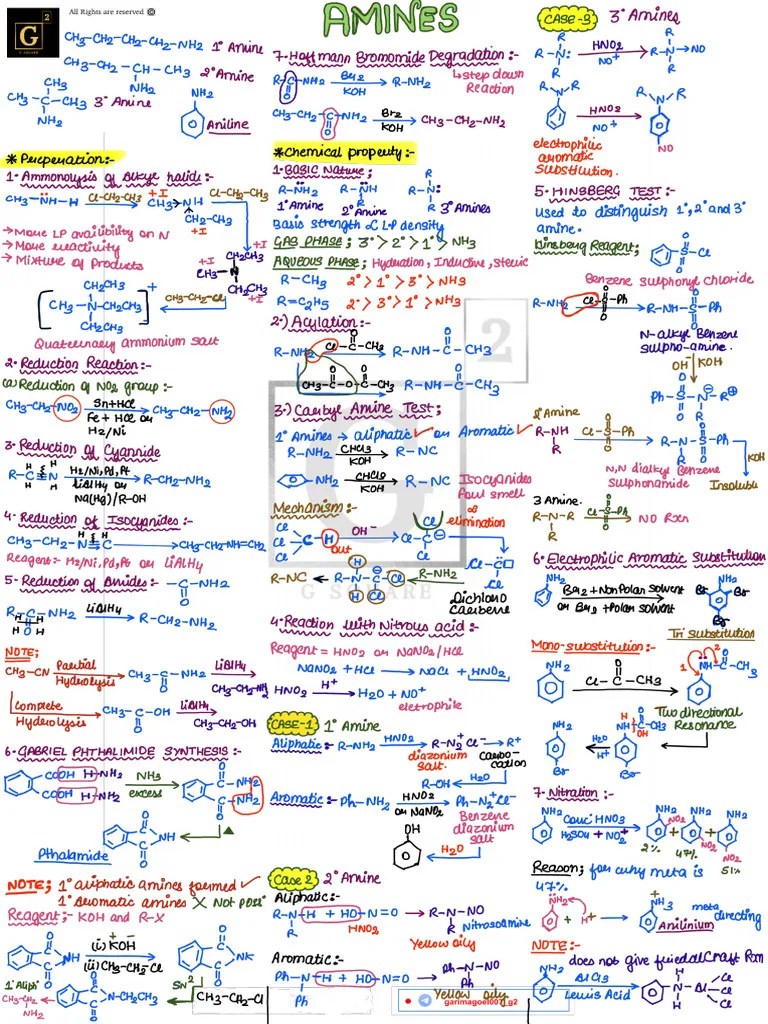 AMINES
All Rights are reserved
G 2
CH3-CH2-CH2-CH2-NH2 1° Amine
CH3-CH2-CH-CH3 2° Amine
NH2
CH3
CH3-C-CH3 3° Amine
NH2
NH2
Aniline
* Preperation:-
1- Ammonolysis of Alkyl halide:-
CH3-N̈-H Cl-CH2-CH3 CH3→NH Cl-CH2-CH3
CH2-CH3
+I
→More LP availibility on N
→ More reactivity
→ Mixture of Products
CH3-N CH2CH3
CH2CH3
CH2CH3
[CH3-N-CH2CH3]+ CH3-CH2-Cl
CH2CH3
Quaternary ammonium salt
2- Reduction Reaction:-
(a) Reduction of NO2 group:-
CH3-CH2-NO2 Sn+HCl CH3-CH2-NH2
Fe + HCl or
H2/Ni
3- Reduction of Cyannide
R-C≡N H2/Ni,Pd,Pt R-CH2-NH2
LiAlH4 or
Na(Hg)/R-OH
4- Reduction of Isocyanides:-
CH3-CH2-N≡C → CH3-CH2-NH=CH2
Reagent- H2/Ni,Pd,Pt or LiAlH4
5- Reduction of Amides:- -C-NH2
O
R-C-NH2 LiAlH4 R-CH2-NH2
NOTE;
CH3-CN Partial Hydrolysis CH3-C-NH2 LiAlH4 CH3-CH2-NH2
Complete Hydrolysis CH3-C-OH LiAlH4 CH3-CH2-OH
6- GABRIEL PHTHALIMIDE SYNTHESIS:-
COOH H-NH2 NH3 excess
COOH H-NH2
C-NH2
C-NH2
Pthalamide
NOTE; 1° aliphatic amines formed ✓
1° Aromatic amines X Not poss
Reagent:- KOH and R-X
NH (i) KOH NK
(ii) CH3-CH2-Cl
1° Aliph
CH3-CH2-NH2 N-CH2-CH3 SN2 CH3-CH2-Cl
7- Hoffmann Bromomide Degradation:-
R-C-NH2 Br2 KOH R-NH2 ↳step down Reaction
CH3-CH2-C-NH2 Br2 KOH CH3-CH2-NH2
*Chemical property:-
1- BASIC Nature;
R-N̈H2 R-N̈H R-N:
1° Amine 2° Amine 3° Amines
Basic strength ∝ L.P density
GAS PHASE; 3°>2°>1°>NH3
AQUEOUS PHASE; Hydration, Inductive, steric
R-CH3 2°>1°>3°>NH3
R=C2H5 2°>3°>1°>NH3
2-) Acylation:-
R-NH2 Cl-C-CH3 R-NH-C-CH3
CH3-C-O-C-CH3 R-NH-C-CH3
3-) Carbyl Amine Test;
1° Amines → aliphatic ✓ or Aromatic ✓
R-NH2 CHCl3 KOH R-NC
NH2 CHCl3 KOH R-NC Isocyanides
Foul smell
Mechanism:- α elimination
Cl Cl Cl C-H OH-
Out
Dichloro carbene
R-NC ← R-N-C-Cl R-NH2
G SQUARE
4- Reaction with Nitrous acid:-
Reagent = HNO2 or NaNO2/HCl
NaNO2 + HCl → NaCl + HNO2
HNO2 H+ H2O + NO+
eletrophile
CASE-1 1° Amine
Aliphatic:- R-NH2 HNO2 R-N2+Cl- → R+
diazonium salt. Carbo-cation
R-OH H2O
Aromatic:- Ph-NH2 HNO2 or NaNO2 Ph-N2+Cl-
OH Benzene diazonium salt
H2O
Case 2 2° Amine
Aliphatic:-
R-N-H + HO-N=O → R-N-NO
R HNO2 R Nitrosoamine
Yellow oily
Aromatic:-
Ph-N-H + HO-N=O → Ph-N-NO
Ph Ph
Yellow oily
garimagoel007_g2
CASE-3 3° Amines
R-N: HNO2 NO+ R-N→NO
HNO2
NO+
NO
electrophilic aromatic substitution.
5- HINSBERG TEST:-
used to distinguish 1°, 2° and 3° amine.
Hinsberg Reagent; S-Cl
Benzene sulphonyl chloride
R-NH2 Cl-S-Ph R-NH-S-Ph
N-alkyl Benzene sulpho-amine.
OH- KOH
Ph-S-N-R
2° Amine
R-NH Cl-S-Ph R-N-S-Ph
R
N,N dialkyl Benzene Sulphonamide
KOH
Insoluble
3 Amine.
R-N-R Cl-S-Ph NO Rxn
R
6- Electrophilic Aromatic Substitution
NH2 Br2 + Non Polar solvent NH2
or Br2 + Polar solvent Br Br
Br
Tri substitution
Mono-substitution:-
NH2 Cl-C-CH3 NH-C-CH3
Two directional Resonance
NH2 H2O H+
Br Br
7- Nitration:-
NH2 Conc. HNO3 NH2 NO2 + NH2 + NH2
H2SO4 + NO2+ NO2 NO2
2% 47% 51%
Reason; for why meta is 47%.
NH2 + H+ → NH3 meta directing
Anilinium
NOTE:-
does not give friedal Craft Rxn
NH2 AlCl3 Lewis Acid H N-Al Cl Cl Cl
H